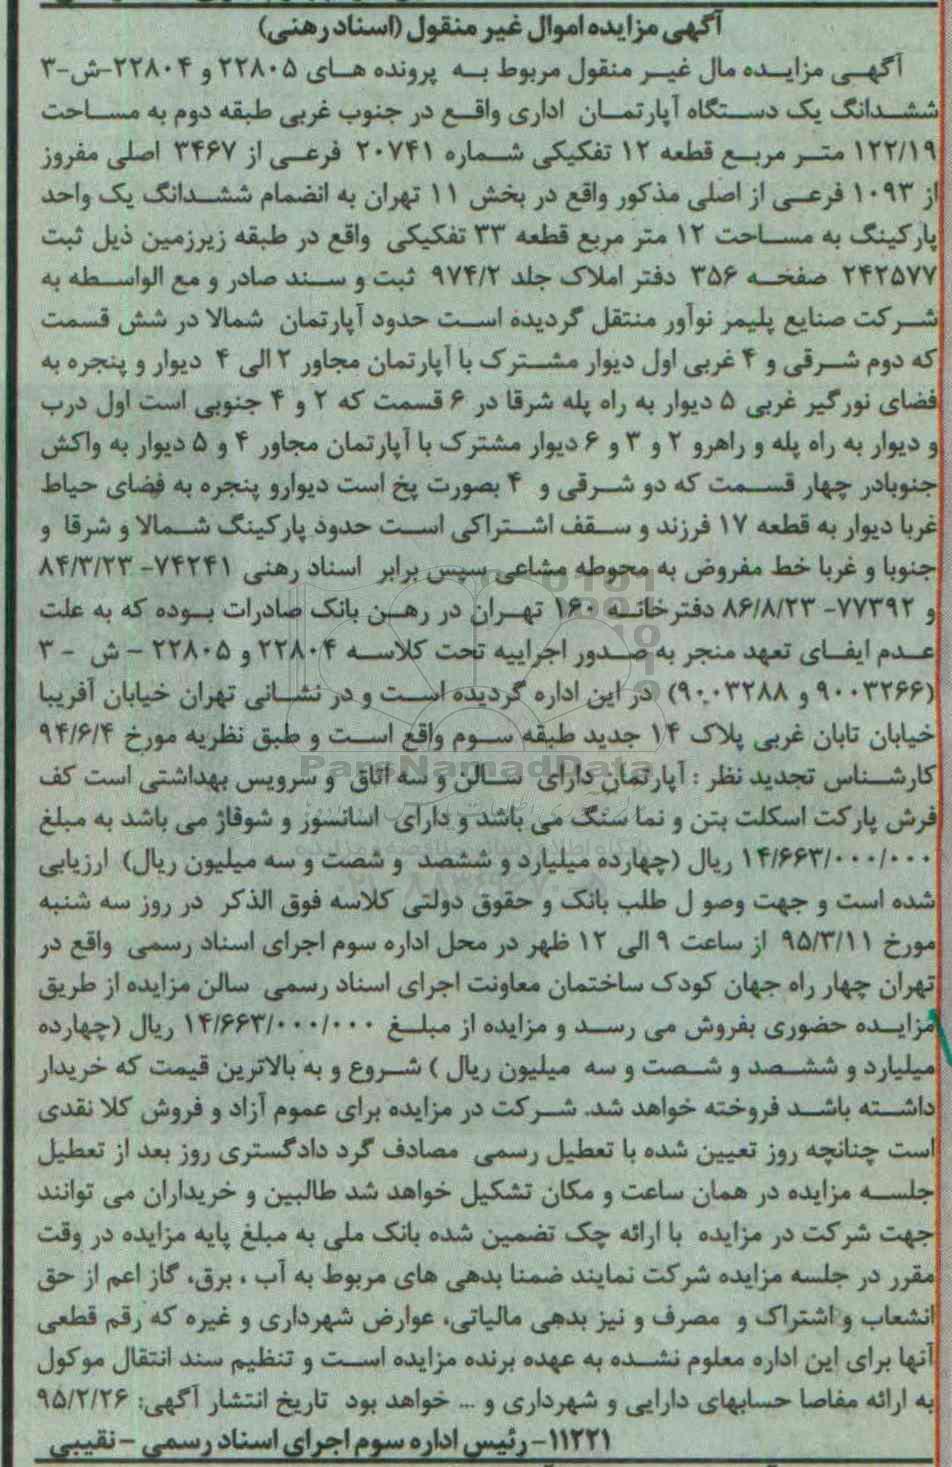 آگهی مزایده اموال غیر منقول (اسناد رهنی)
آگهی مزایده مال غیر منقول مربوط به پرونده های ۲۲۸۰۵ و ۲۲۸۰۴-ش-۳
ششدانگ یک دستگاه آپارتمان اداری واقع در جنوب غربی طبقه دوم به مساحت
۱۲۲/۱۹ متر مربع قطعه ۱۲ تفکیکی شماره ۲۰۷۴۱ فرعی از ۳۴۶۷ اصلی مفروز
از ۱۰۹۳ فرعی از اصلی مذکور واقع در بخش ۱۱ تهران به انضمام ششدانگ یک واحد
پارکینگ به مساحت ۱۲ متر مربع قطعه ۳۳ تفکیکی واقع در طبقه زیرزمین ذیل ثبت
۲۴۲۵۷۷ صفحه ۳۵۶ دفتر املاک جلد ۹۷۴/۲ ثبت و سند صادر و مع الواسطه به
شرکت صنایع پلیمر نوآور منتقل گردیده است حدود آپارتمان شمالا در شش قسمت
که دوم شرقی و ۴ غربی اول دیوار مشترک با آپارتمان مجاور ۲ الی ۴ دیوار و پنجره به
فضای نورگیر غربی ۵ دیوار به راه پله شرقا در ۶ قسمت که ۲ و ۴ جنوبی است اول درب
و دیوار به راه پله و راهرو ۲ و ۳ و ۶ دیوار مشترک با آپارتمان مجاور ۴ و ۵ دیوار به واکش
جنوبادر چهار قسمت که دو شرقی و ۴ بصورت پخ است دیوارو پنجره به فضای حیاط
غربا دیوار به قطعه ۱۷ فرزند و سقف اشتراکی است حدود پارکینگ شمالا و شرقا و
جنوبا و غربا خط مفروض به محوطه مشاعی سپس برابر اسناد رهنی ۷۴۲۴۱- ۸۴/۳/۲۳
و ۷۷۳۹۲- ۸۶/۸/۲۳ دفترخانه ۱۶۰ تهران در رهن بانک صادرات بوده که به علت
عدم ایفای تعهد منجر به صدور اجراییه تحت کلاسه ۲۲۸۰۴ و ۲۲۸۰۵ - ش - ۳
(۹۰۰۳۲۶۶ و ۹۰۰۳۲۸۸) در این اداره گردیده است و در نشانی تهران خیابان آفریبا
خیابان تابان غربی پلاک ۱۴ جدید طبقه سوم واقع است و طبق نظریه مورخ ۹۴/۶/۴
ParsNamadData
کارشناس تجدید نظر : آپارتمان دارای سالن و سه اتاق و سرویس بهداشتی است کف
فرش پارکت اسکلت بتن و نما سنگ می باشد و دارای اسانسور و شوفاژ می باشد به مبلغ
۱۴/۶۶۳/۰۰۰/۰۰۰ ریال (چهارده میلیارد و ششصد و شصت و سه میلیون ریال) ارزیابی
شده است و جهت وصو ل طلب بانک و حقوق دولتی کلاسه فوق الذکر در روز سه شنبه
مورخ ۹۵/۳/۱۱ از ساعت ۹ الی ۱۲ ظهر در محل اداره سوم اجرای اسناد رسمی واقع در
تهران چهار راه جهان کودک ساختمان معاونت اجرای اسناد رسمی سالن مزایده از طریق
مزایده حضوری بفروش می رسد و مزایده از مبلغ ۱۴/۶۶۳/۰۰۰/۰۰۰ ریال (چهارده
میلیارد و ششصد و شصت و سه میلیون ریال ) شروع و به بالاترین قیمت که خریدار
داشته باشد فروخته خواهد شد. شرکت در مزایده برای عموم آزاد و فروش کلا نقدی
است چنانچه روز تعیین شده با تعطیل رسمی مصادف گرد دادگستری روز بعد از تعطیل
جلسه مزایده در همان ساعت و مکان تشکیل خواهد شد طالبین و خریداران می توانند
جهت شرکت در مزایده با ارائه چک تضمین شده بانک ملی به مبلغ پایه مزایده در وقت
مقرر در جلسه مزایده شرکت نمایند ضمنا بدهی های مربوط به آب ، برق، گاز اعم از حق
انشعاب و اشتراک و مصرف و نیز بدهی مالیاتی، عوارض شهرداری و غیره که رقم قطعی
آنها برای این اداره معلوم نشده به عهده برنده مزایده است و تنظیم سند انتقال موکول
به ارائه مفاصا حسابهای دارایی و شهرداری و ... خواهد بود تاریخ انتشار آگهی: ۹۵/۲/۲۶
۱۱۲۲۱- رئیس اداره سوم اجرای اسناد رسمی - نقیبی